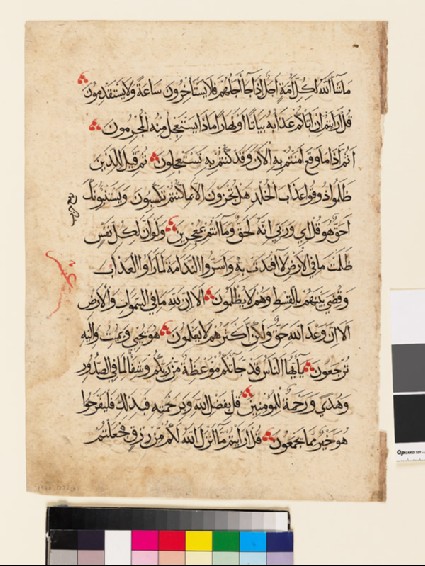 ماشا الله لكل أمة أجل إذا جا أجلهم فلا يستأخرون ساعة ولا يستقدمون
قل أرايتم إن أتاكم عذابه بياتا أو نهارا ماذا يستعجل منه المجرمون
أثم إذا ما وقع آمنتم به آلان وقد كنتم به تستعجلون ثم قيل للذين
ظلموا ذوقوا عذاب الخلد هل تجزون إلا بما كنتم تكسبون ويستنبونك
أحق هو قل إي وربي إنه لحق وما أنتم بمعجزين ولو أن لكل نفس
ظلمت ما في الأرض لافتدت به وأسروا الندامة لما رأوا العذاب
وقضي بينهم بالقسط وهم لا يظلمون ألا إن لله ما في السموات والأرض
ألا إن وعد الله حق ولكن أكثرهم لا يعلمون هو يحيي ويميت وإليه
ترجعون يأيها الناس قد جاتكم موعظة من ربكم وشفا لما في الصدور
وهدى ورحمة للمومنين قل بفضل الله وبرحمته فبذلك فليفرحوا
هو خير مما يجمعون قل أرايتم ما أنزل الله لكم من رزق فجعلتم